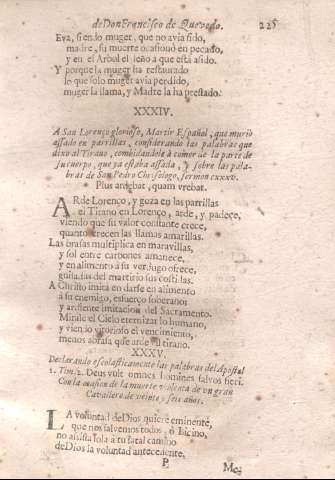 de Don Francisco de Quevedo. 225
Eva, si en lo muger, que no avia sido,
madre, su muerte ocasionò en pecado,
y en el Arbol el leño a que està asido.
Y porque la muger ha restaurado
lo que solo muger avia perdido,
muger la llama, y Madre la ha prestado.
XXXIV.
A San Lorenço glorioso, Martir Español, que muriò
assado en parrillas, considerando las palabras que
dixo al Tirano, combidandole à comer de la parte de
su cuerpo, que ya estaba assada, y sobre las pala-
bras de San Pedro Chrisologo, sermon CXXXV.
Plus ardebat, quam urebat.
ARde Lorenço, y goza en las parrillas
el Tirano en Lorenço, arde, y padece,
viendo que su valor constante crece,
quanto crecen las llamas amarillas.
Las brasas multiplica en maravillas,
y sol entre carbones amanece,
y en alimento à su verdugo ofrece,
guisadas del martirio sus costillas.
A Christo imita en darse en alimento
à su enemigo, esfuerço soberano:
y ardiente imitacion del Sacramento.
Mirale el Cielo eternizar lo humano,
y viendo vitorioso el vencimiento,
menos abrasa que arde el tirano.
XXXV.
Declarando escolasticamente las palabras del Apostol
1. Tim. 2. Deus vult omnes homines salvos fieri.
Con la ocasion de la muerte violenta de un gran
Cavallero de veinte y seis años.
LA voluntad de Dios quiere eminente,
que nos salvemos todos, ò Licino,
no asista sola à tu fatal camino
de Dios la voluntad antecedente,
P.